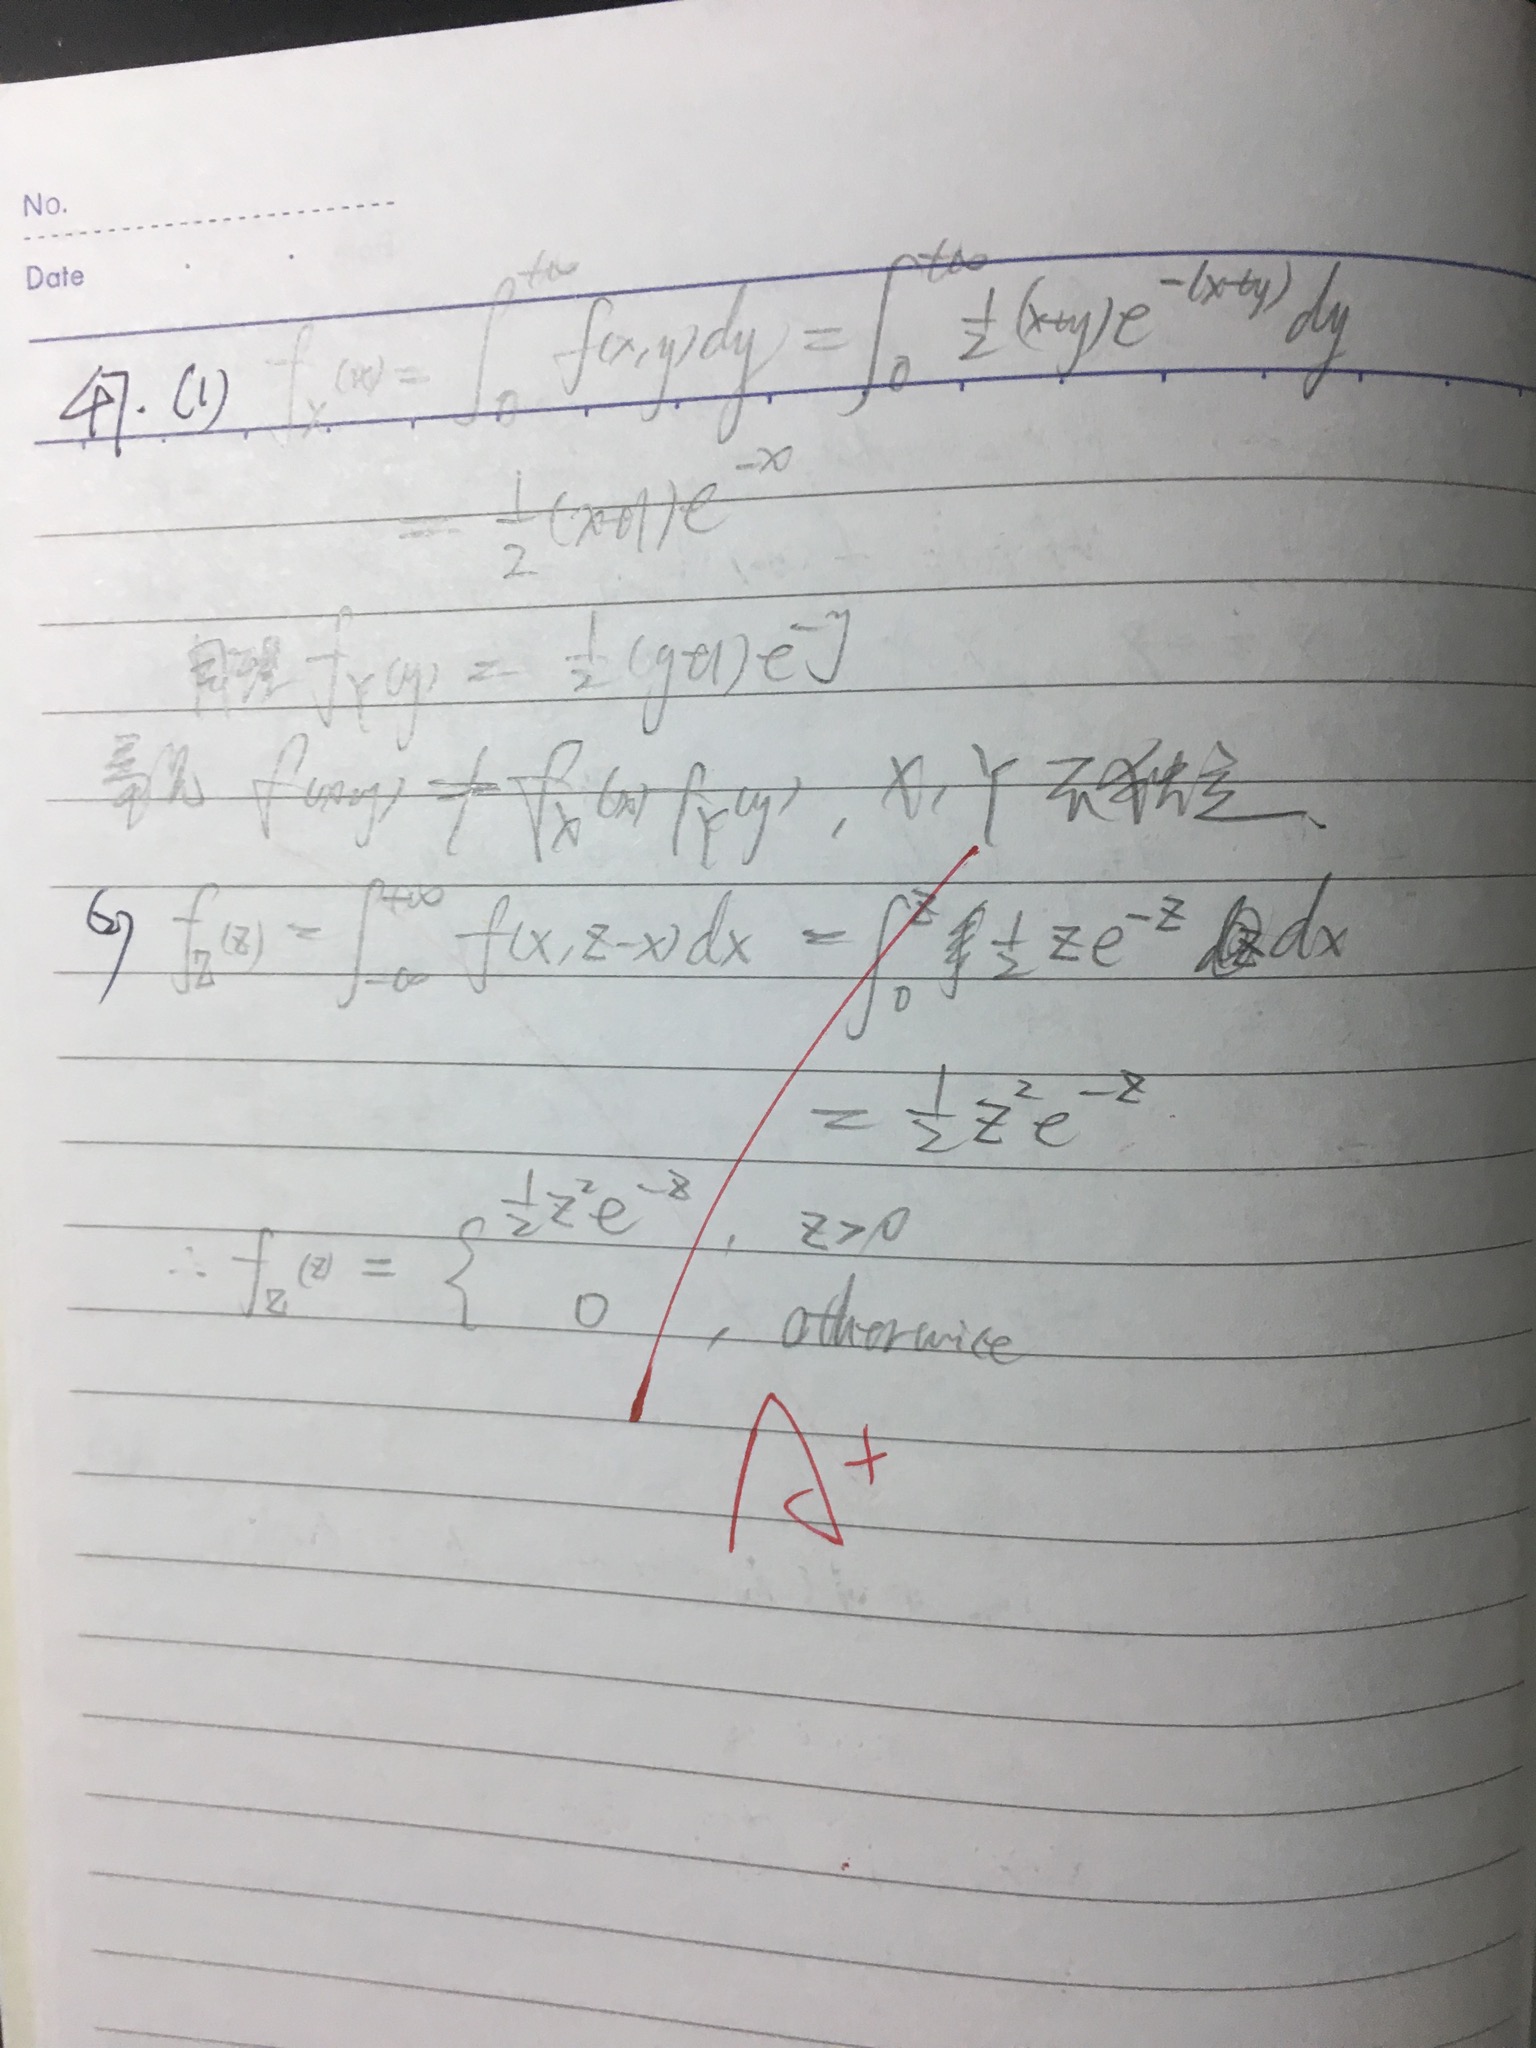 No.
Date
47. (1) f_X(x) = ∫_0^{+∞} f(x,y)dy = ∫_0^{+∞} 1/2 (x+y)e^{-(x+y)} dy
= 1/2 (x+1)e^{-x}
同理 f_Y(y) = 1/2 (y+1)e^{-y}
f(x,y) ≠ f_X(x) f_Y(y), X, Y 不独立、
(2) f_Z(z) = ∫_{-∞}^{+∞} f(x, z-x)dx = ∫_0^z 1/2 z e^{-z} dx
= 1/2 z^2 e^{-z}
∴ f_Z(z) = { 1/2 z^2 e^{-z}, z>0
0, otherwise
A+